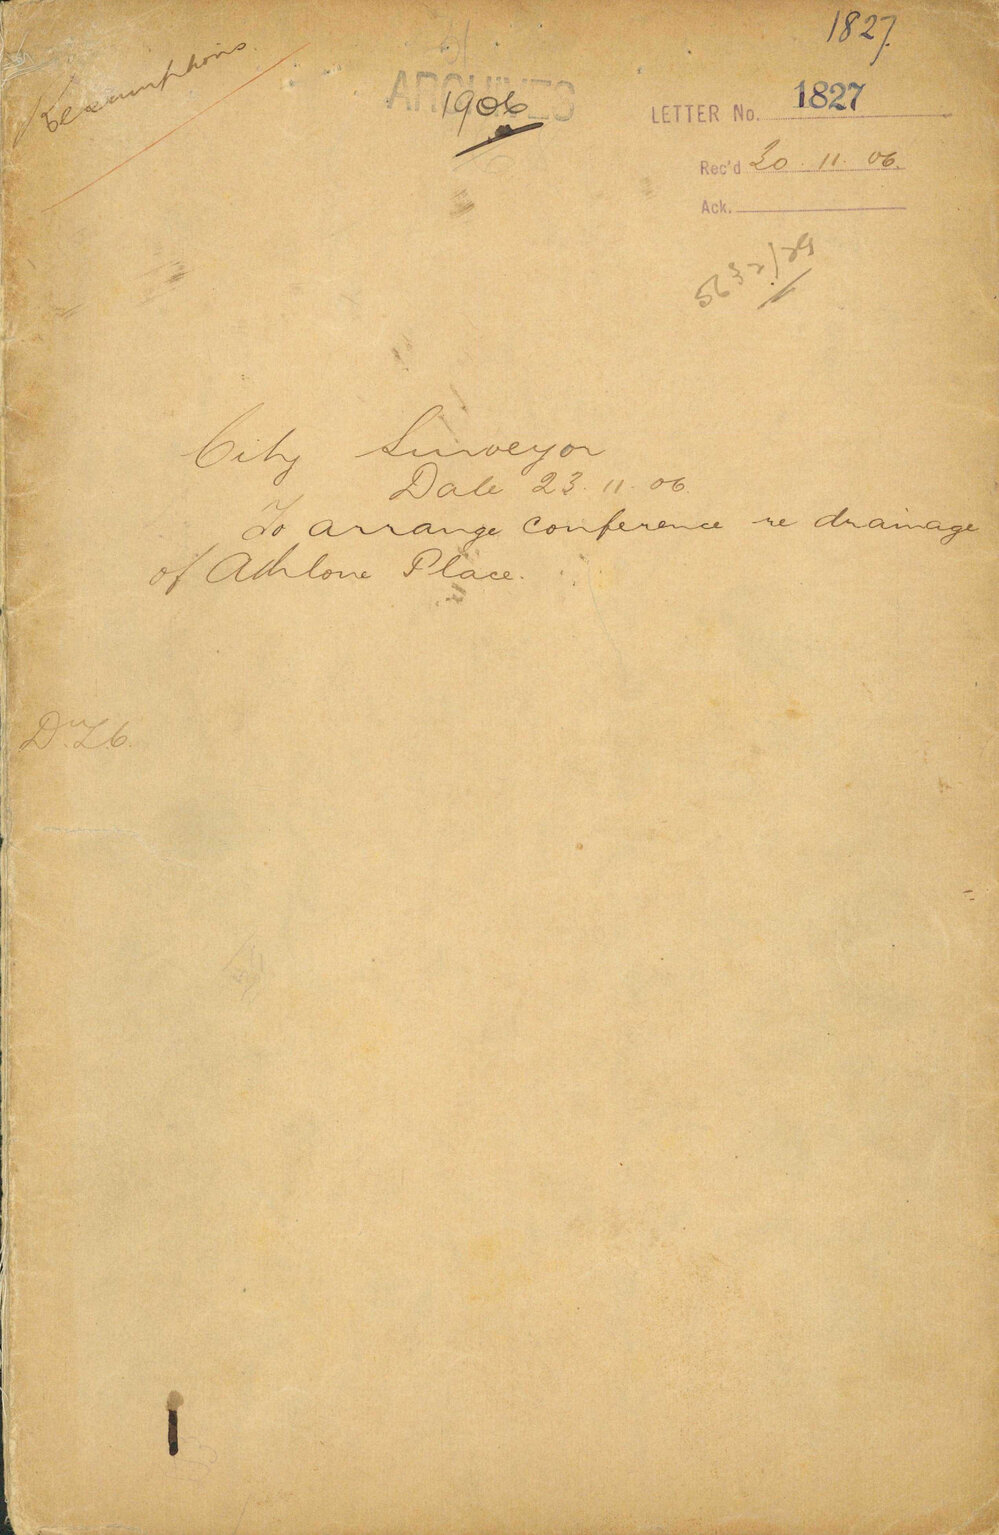 1827.
Resumptions.
of
ARCHIVES
1906
LETTER No. 1827
Rec'd 20.11.06.
Ack.
5632/29
City Surveyor
Date 23.11.06.
To arrange conference re drainage
of Athlone Place.